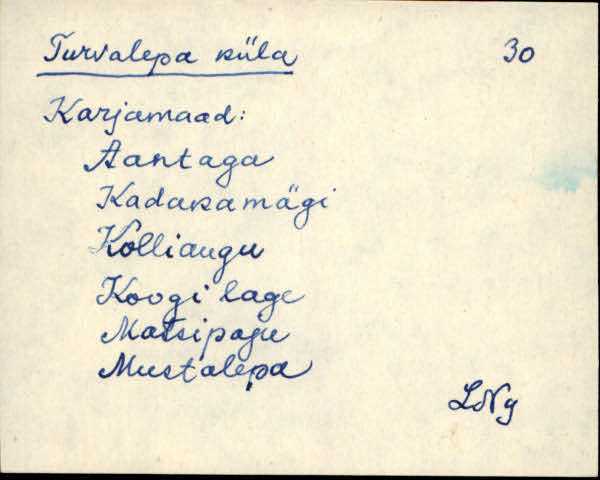 Turvalepa küla 30
Karjamaad:
Aantaga
Kadakamägi
Kolliaugu
Koogi lage
Matsipagu
Mustalepa
LNg